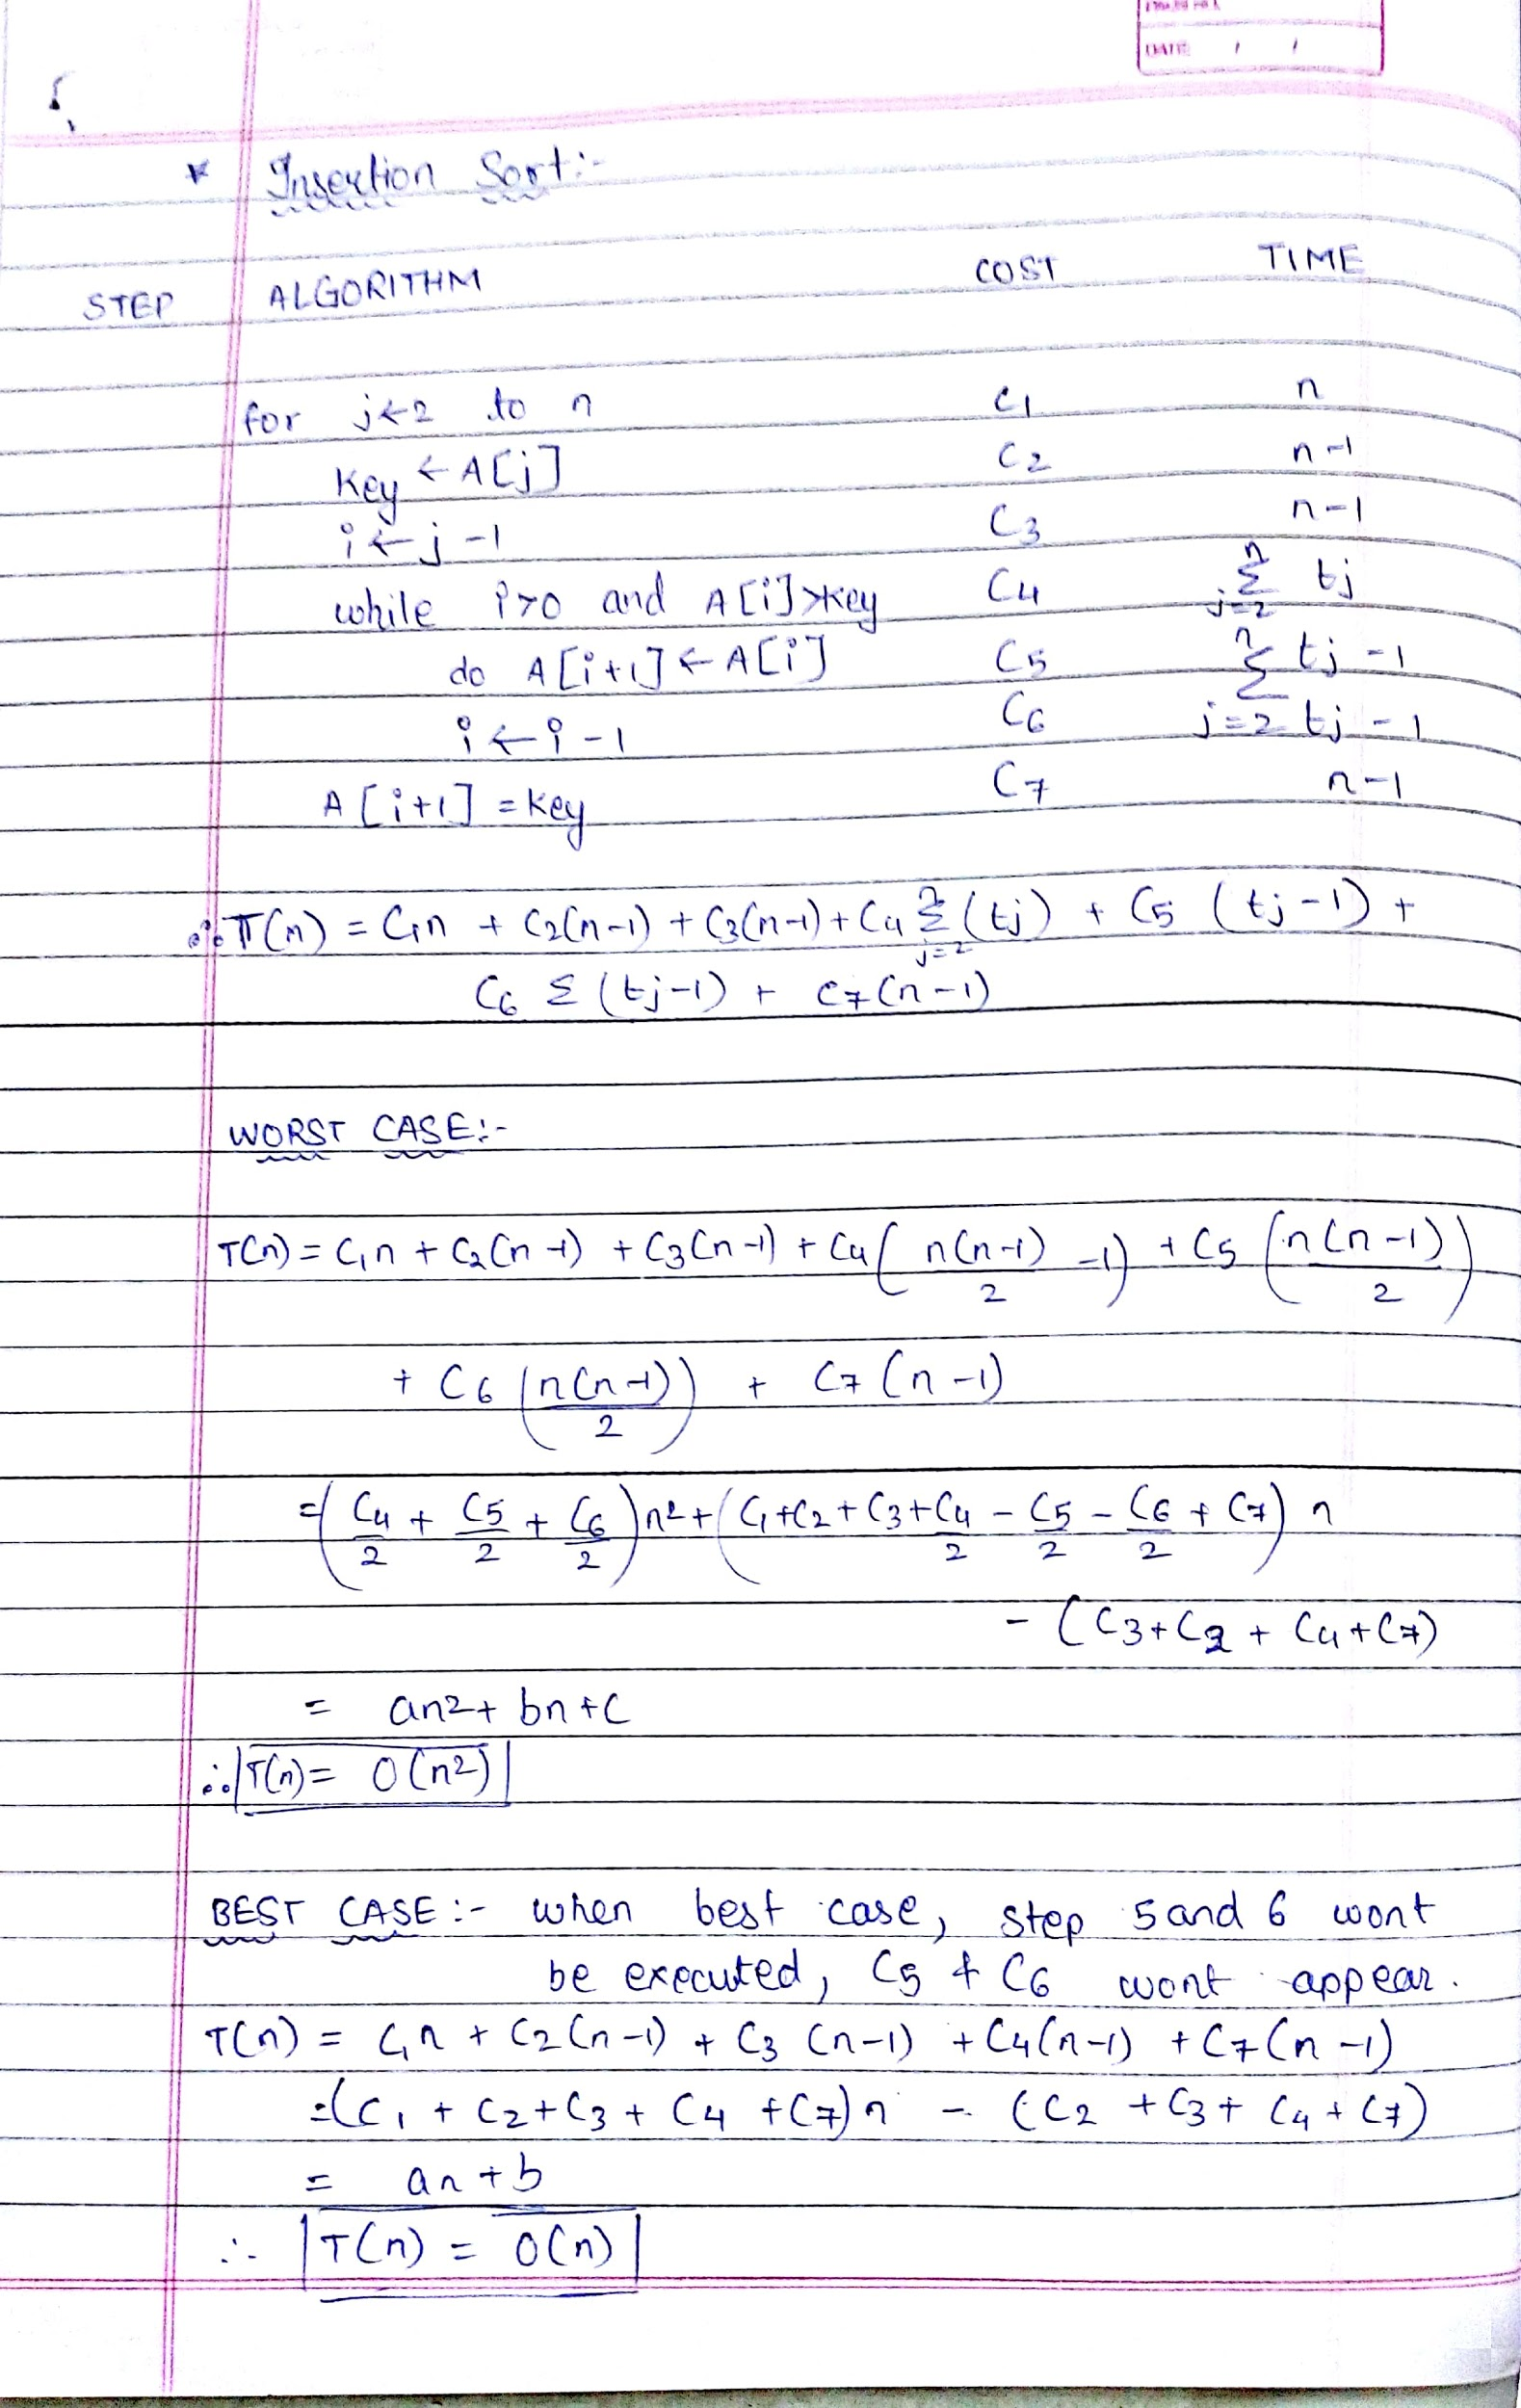 DATE / /
* Insertion Sort:-
STEP ALGORITHM COST TIME
for j←2 to n C1 n
Key ← A[j] C2 n-1
i ← j-1 C3 n-1
while i>0 and A[i]>key C4 n Σ j=2 tj
do A[i+1] ← A[i] C5 n Σ tj -1
i ← i-1 C6 j=2 tj -1
A[i+1] = key C7 n-1
∴ T(n) = C1n + C2(n-1) + C3(n-1) + C4 n Σ j=2 (tj) + C5 (tj-1) +
C6 Σ (tj-1) + C7(n-1)
WORST CASE:-
T(n) = C1n + C2(n-1) + C3(n-1) + C4( n(n-1)/2 -1) + C5 (n(n-1)/2)
+ C6 (n(n-1)/2) + C7 (n-1)
= (C4/2 + C5/2 + C6/2) n2 + (C1+C2+C3+C4/2 - C5/2 - C6/2 + C7) n
- (C3+C2 + C4+C7)
= an2 + bn+c
∴ T(n) = O(n2)
BEST CASE:- when best case, step 5 and 6 wont
be executed, C5 & C6 wont appear.
T(n) = C1n + C2(n-1) + C3 (n-1) + C4(n-1) + C7(n-1)
=(C1 + C2+C3+ C4 +C7)n - (C2 +C3+ C4+C7)
= an+b
∴ T(n) = O(n)